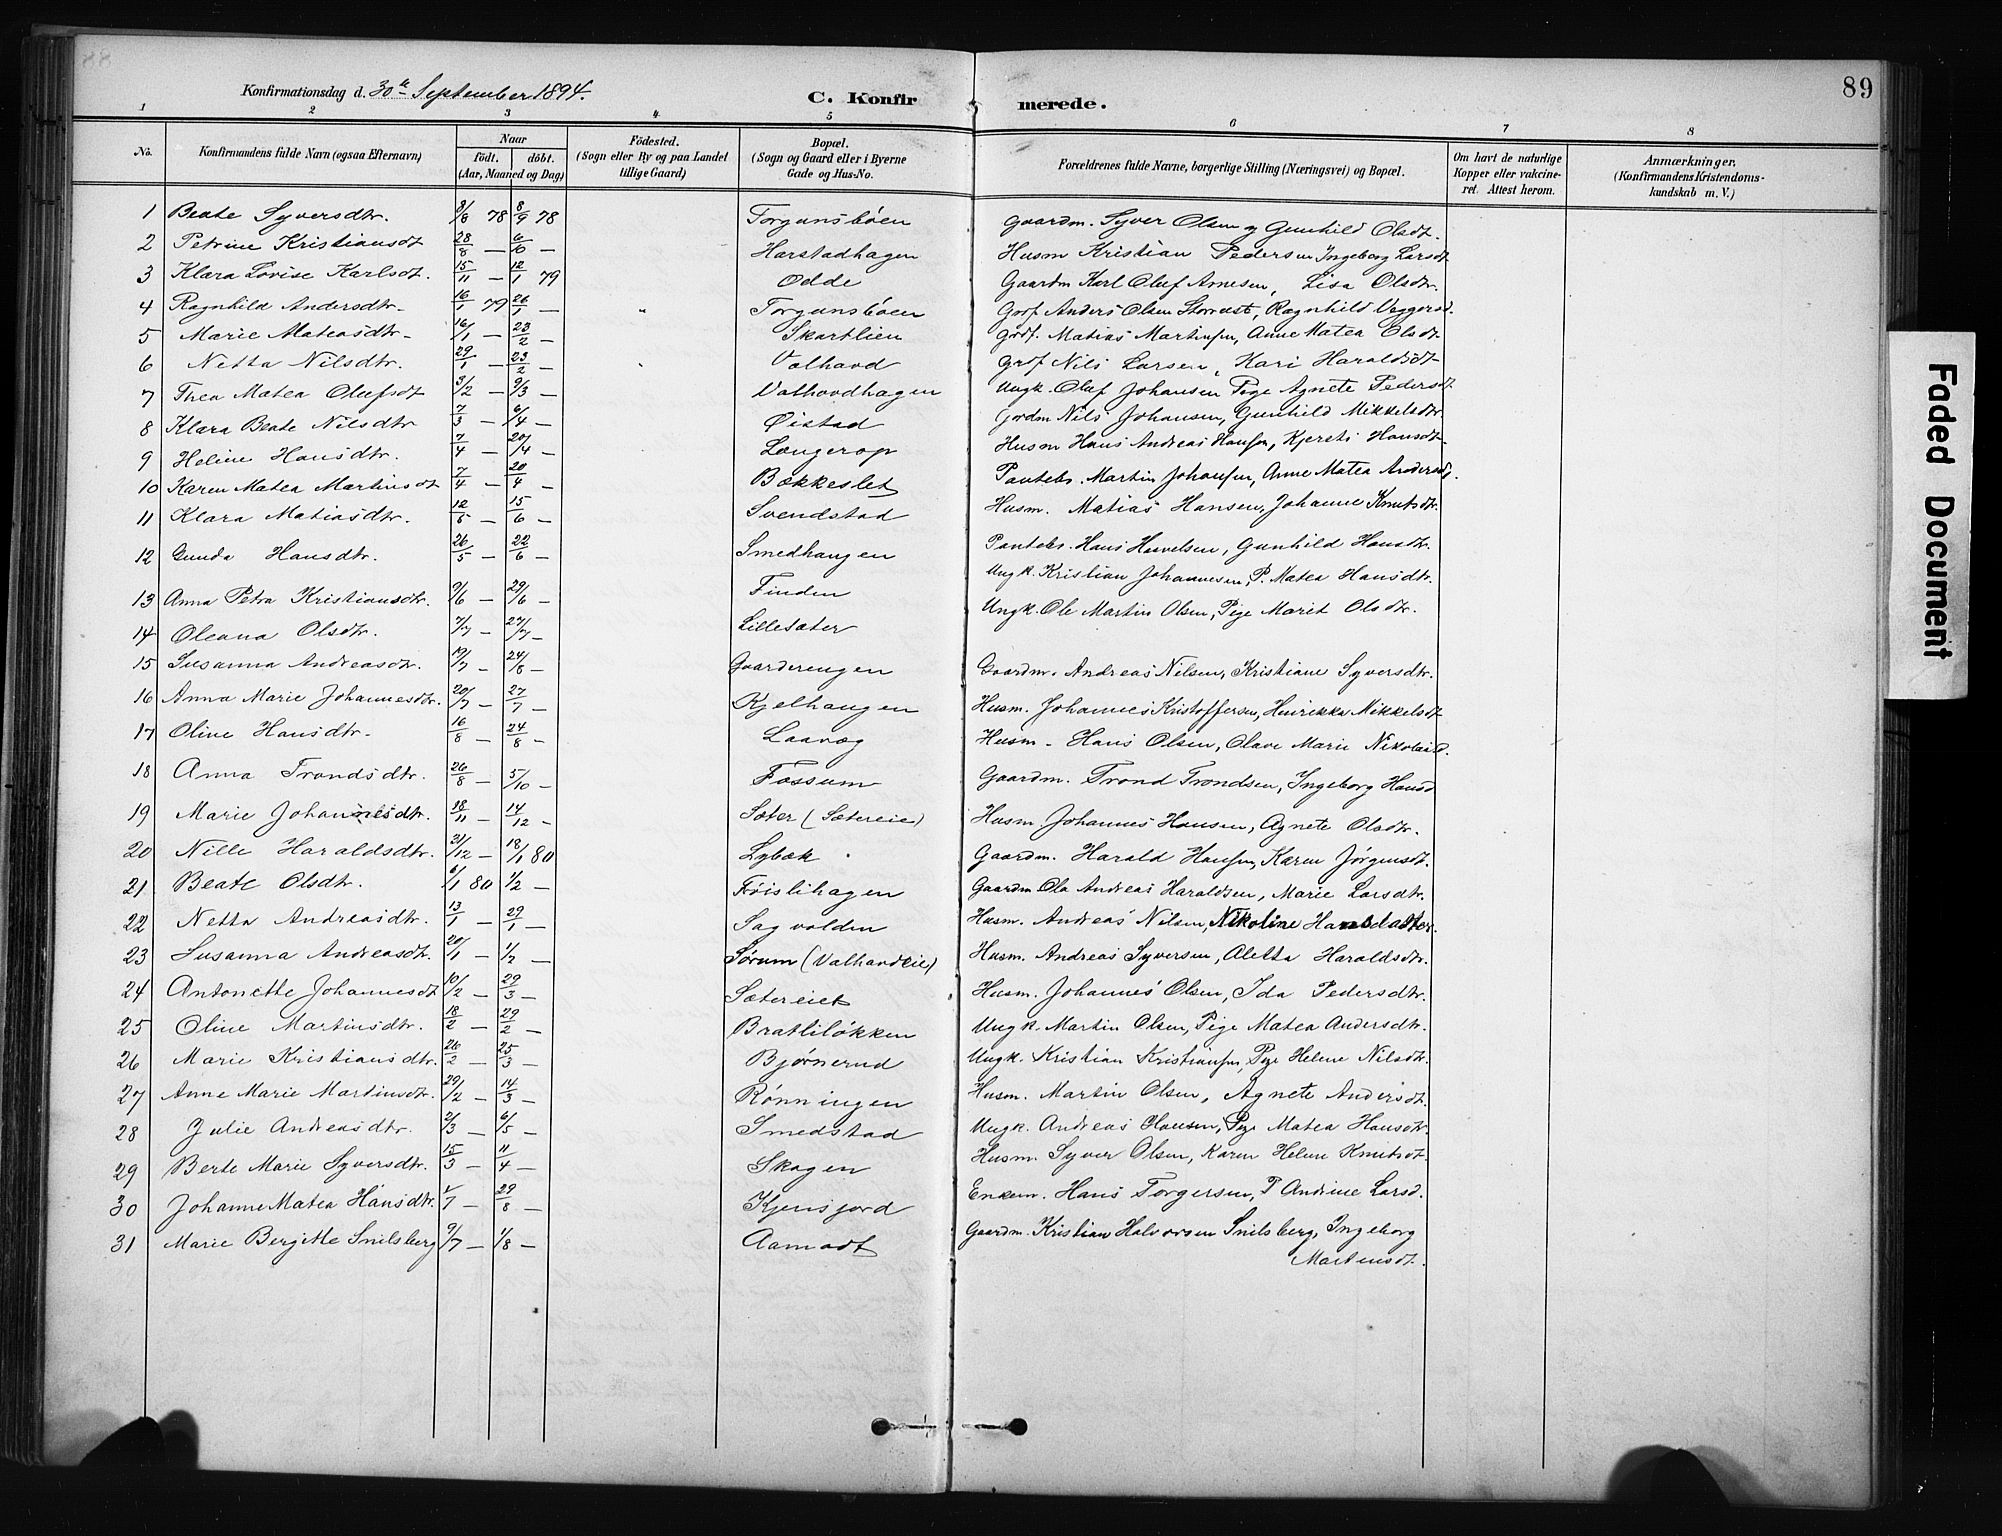 89
Konfirmationsdag d. 30te September 1894.
C. Konfirmerede.
1 2 3 4 5 6 7 8
No.
Konfirmandens fulde Navn (ogsaa Efternavn)
Naar
födt. döbt.
(Aar, Maaned og Dag)
Födested.
(Sogn eller By og paa Landet
tillige Gaard)
Bopæl.
(Sogn og Gaard eller i Byerne
Gade og Hus-No.
Forældrenes fulde Navne, borgerlige Stilling (Næringsvei) og Bopæl.
Om havt de naturlige
Kopper eller vakcine-
ret. Attest herom.
Anmærkninger.
(Konfirmandens Kristendoms-
kundskab m. V.)
1 Beate Syversdtr. 3/8 78 8/9 78 Torgunsböen Gaardm. Syver Olsen og Gunhild Olsdt.
2 Petrine Kristiansdt 28/8 — 6/10 — Harstadhagen Husm Kristian Pedersen Ingeborg Larsdt
3 Klara Lovise Karlsdt. 15/11 — 12/1 79 Odde Gaardm Karl Oluf Arnesen, Lisa Olsdtr.
4 Ragnhild Andersdtr. 16/1 79 26/1 — Torgunsböen Grdf. Anders Olsen, Ragnhild
5 Marie Mateasdtr. 16/1 — 23/2 — Skartlien Grdf. Matias Martinsen, Anne Matea Olsdt
6 Netta Nilsdtr. 29/1 — 23/2 — Valhavd Grdf Nils Larsen, Kari Haraldsdt
7 Thea Matea Olufsdt 3/2 — 9/3 — Valhovdhagen Ungk. Oluf Johansen Pige Agnete Pedersdt.
8 Klara Beate Nilsdtr. 7/3 — 6/4 — Öistad Grdm Nils Johansen, Gunhild Mikkelsdtr.
9 Heline Hansdtr. 7/4 — 20/4 — Longerop Husm Hans Andreas Hansen, Kjersti Hansdt
10 Karen Matea Martinsdt 7/4 — 20/4 — Bækkeslet Pantebr. Martin Johansen, Anne Matea Andersdt.
11 Klara Matiasdtr. 12/5 — 15/6 — Svendstad Husm. Matias Hansen, Johanne Knutsdtr.
12 Gunda Hansdtr. 26/5 — 22/6 — Smedhaugen Pantebr. Hans, Gunhild Hansdtr.
13 Anna Petra Kristiansdtr. 9/6 — 29/6 — Finden Ungk. Kristian Johannesen, P. Matea Hansdtr.
14 Oleana Olsdtr. 7/7 — 27/7 — Lillesæter Ungk. Ole Martin Olsen, Pige Marit Olsdtr.
15 Susanna Andreasdtr. 19/7 — 24/8 — Gaarderengen Gaardm. Andreas Nilsen, Kristiane Syversdtr.
16 Anna Marie Johannesdtr. 20/7 — 27/7 — Kjelhaugen Husm. Johannes Kristoffersen, Henrikka Mikkelsdt
17 Oline Hansdtr. 16/8 — 24/8 — Laaväg Husm. Hans Olsen, Olave Marie Nikolaisd.
18 Anna Trondsdtr. 26/8 — 5/10 — Fossum Gaardm. Trond Trondsen, Ingeborg Hansd
19 Marie Johannesdtr. 18/11 — 14/12 — Sæter (Sætereie) Husm Johannes Hansen, Agnete Olsdtr.
20 Nille Haraldsdtr. 31/12 — 18/1 80 Lybæk Gaardm. Harald Hansen, Karen Jørgensdt.
21 Beate Olsdtr. 6/1 80 1/2 — Föislihagen Gaardm Ole Andreas Haraldsen, Marie Larsdtr.
22 Netta Andreasdtr. 13/1 — 29/1 — Sagvolden Husm. Andreas Nilsen, Nikoline Hansdatter.
23 Susanna Andreasdtr. 20/1 — 1/2 — Sørum (Valhavdeie) Husm. Andreas Syversen, Aletta Haraldsdtr.
24 Antonette Johannesdt 10/2 — 29/3 — Sætereiet Husm. Johannes Olsen, Ida Pedersdtr.
25 Oline Martinsdtr. 18/2 — 29/2 — Bratliløkken Ungk. Martin Olsen, Pige Matea Andersdtr.
26 Marie Kristiansdtr. 26/2 — 25/3 — Bjørnerud Ungk. Kristian Kristiansen, Pige Helene Nilsdtr.
27 Anne Marie Martinsdtr. 29/2 — 14/3 — Rønningen Husm. Martin Olsen, Agnete Andersdt.
28 Julie Andreasdtr. 2/3 — 6/5 — Smedstad Ungk. Andreas Hansen, Pige Matea Hansdtr.
29 Berte Marie Syversdtr. 15/3 — 11/4 — Skogen Husm. Syver Olsen, Karen Helene Knutsdt.
30 Johanne Matea Hansdtr. 1/7 — 29/8 — Kjensjord Enkem. Hans Torgersen, P Andrine Larsd.
31 Marie Bergitte Snilsberg 9/7 — 1/8 — Aamodt Gaardm. Kristian Halvorsen Snilsberg, Ingeborg
Martinsdt.
Faded Document